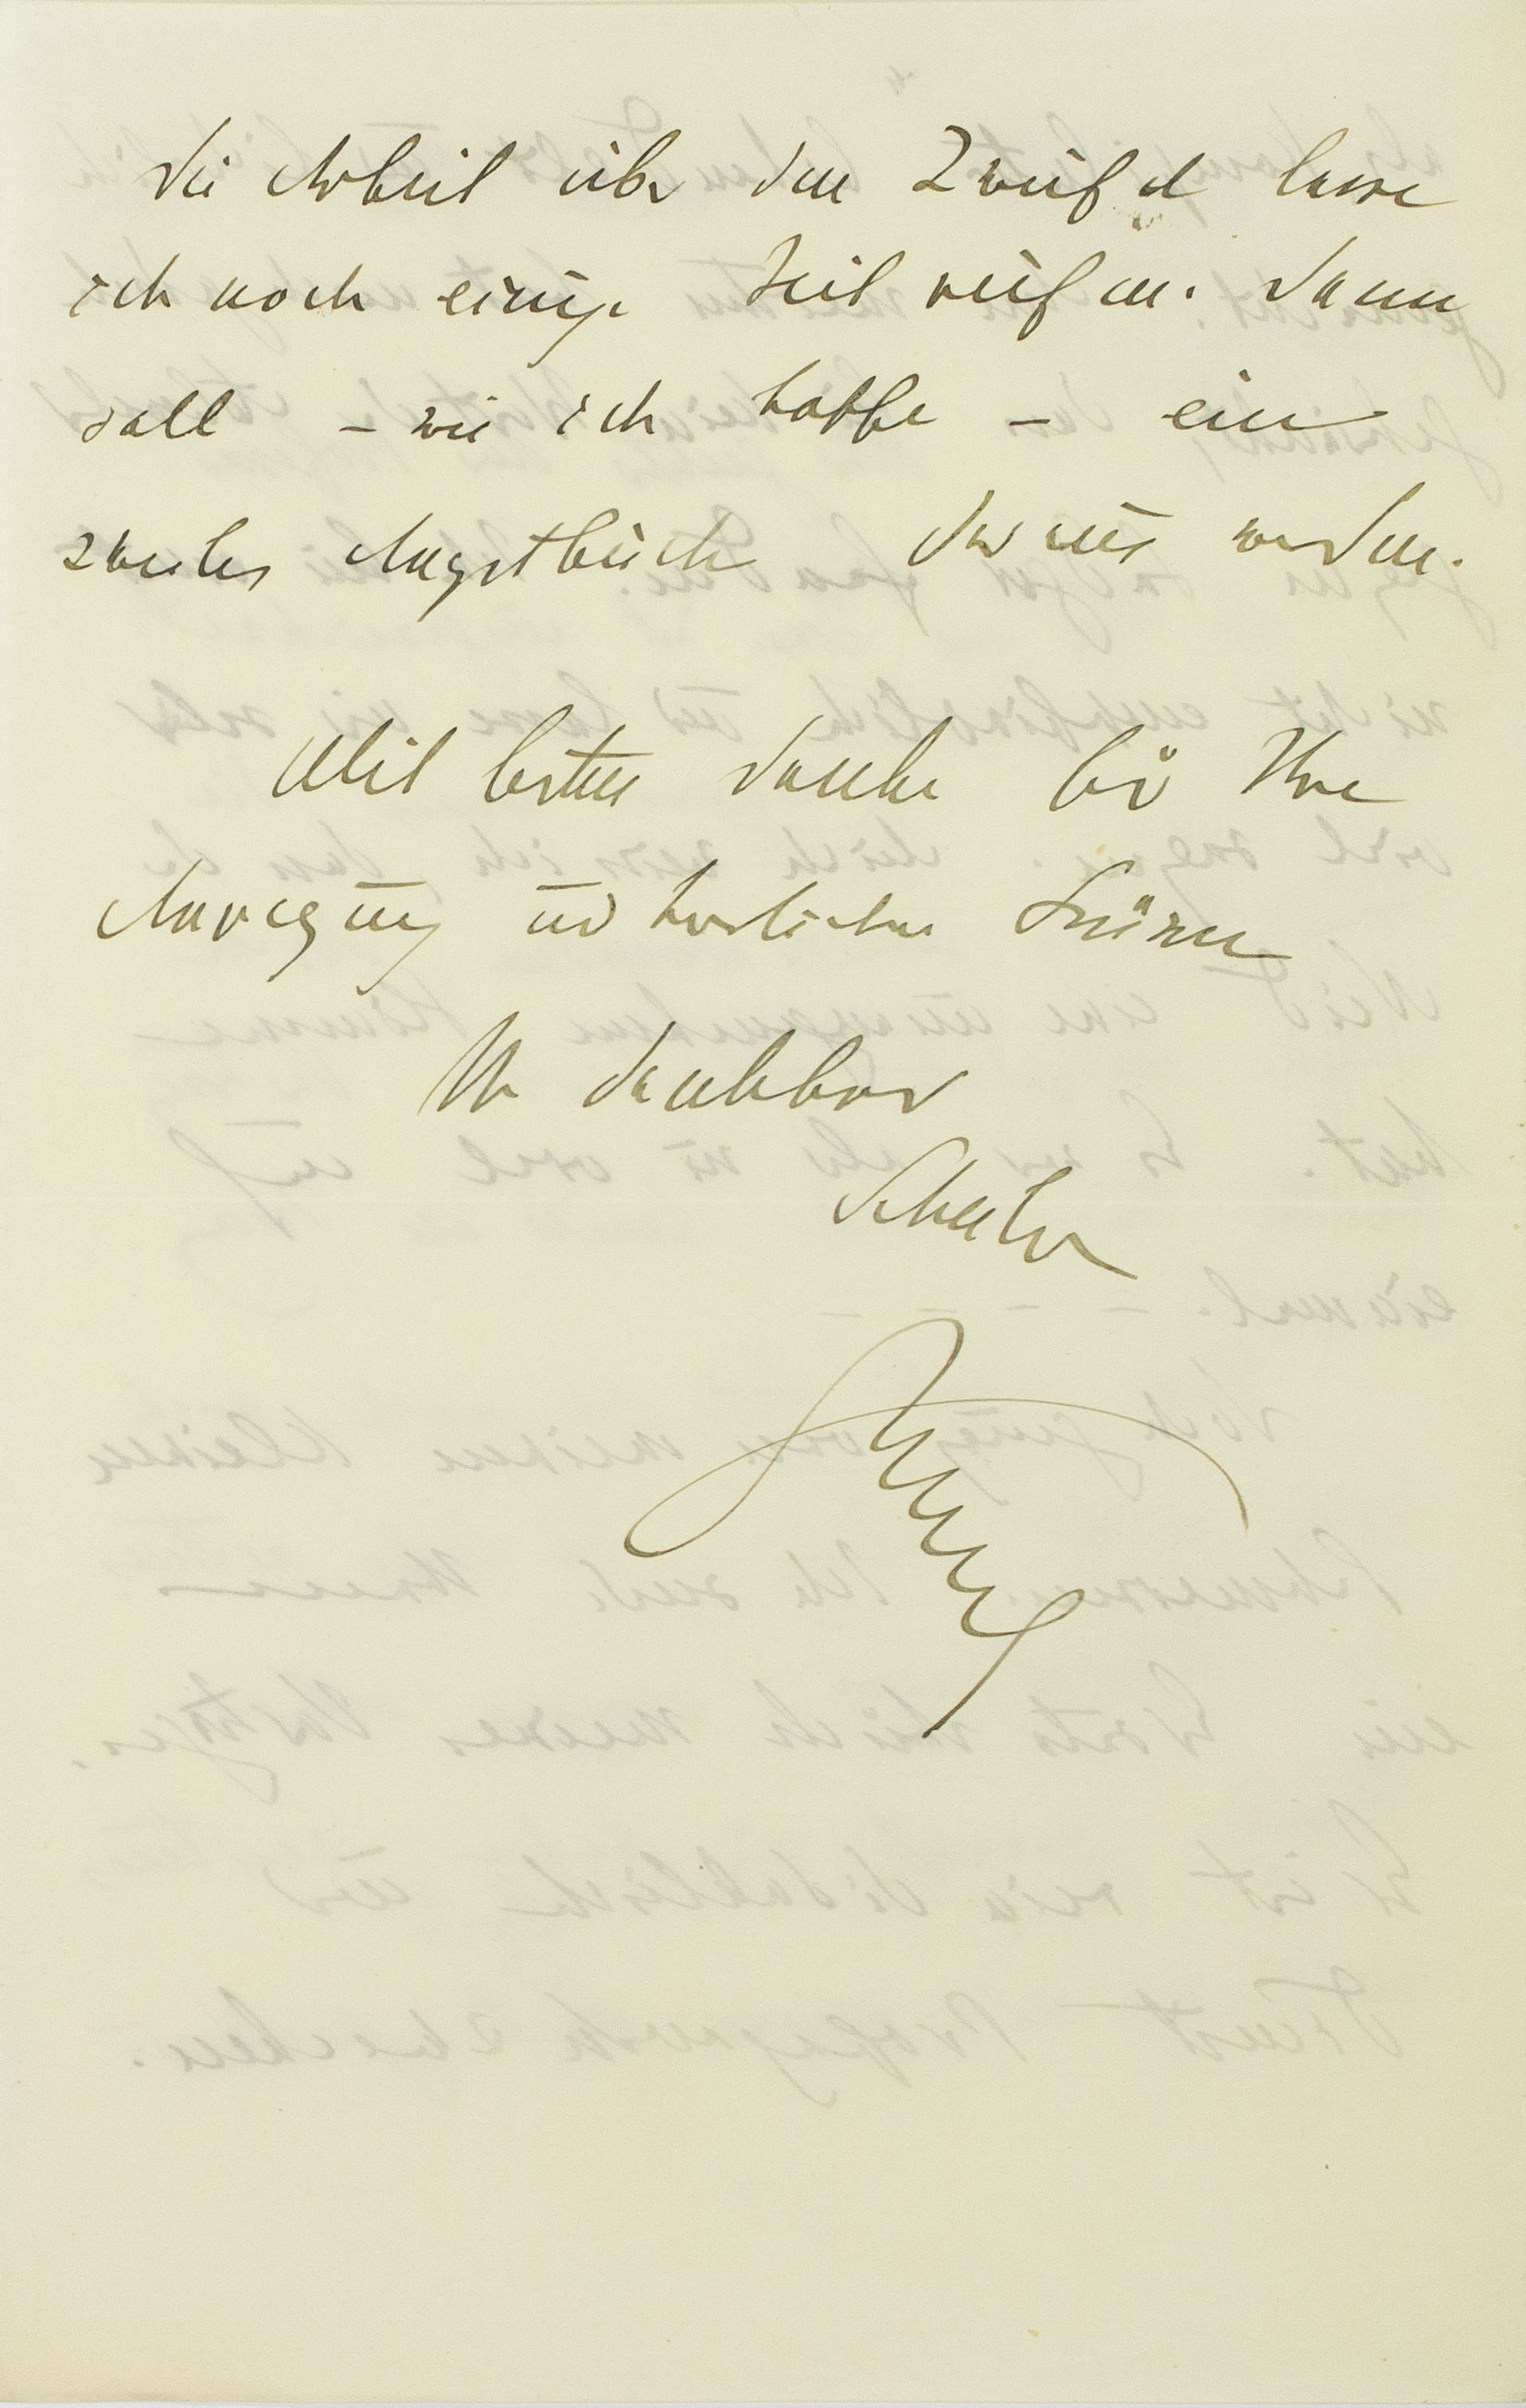 Die Arbeit über den Zweifel lasse
ich noch einige Zeit reifen. Dann
soll – wie ich hoffe – ein
zweites Angstbuch daraus werden.
Mit besten Danke für Ihre
Anregung und herzlichen Grüssen
Ihr dankbarer
Schüler